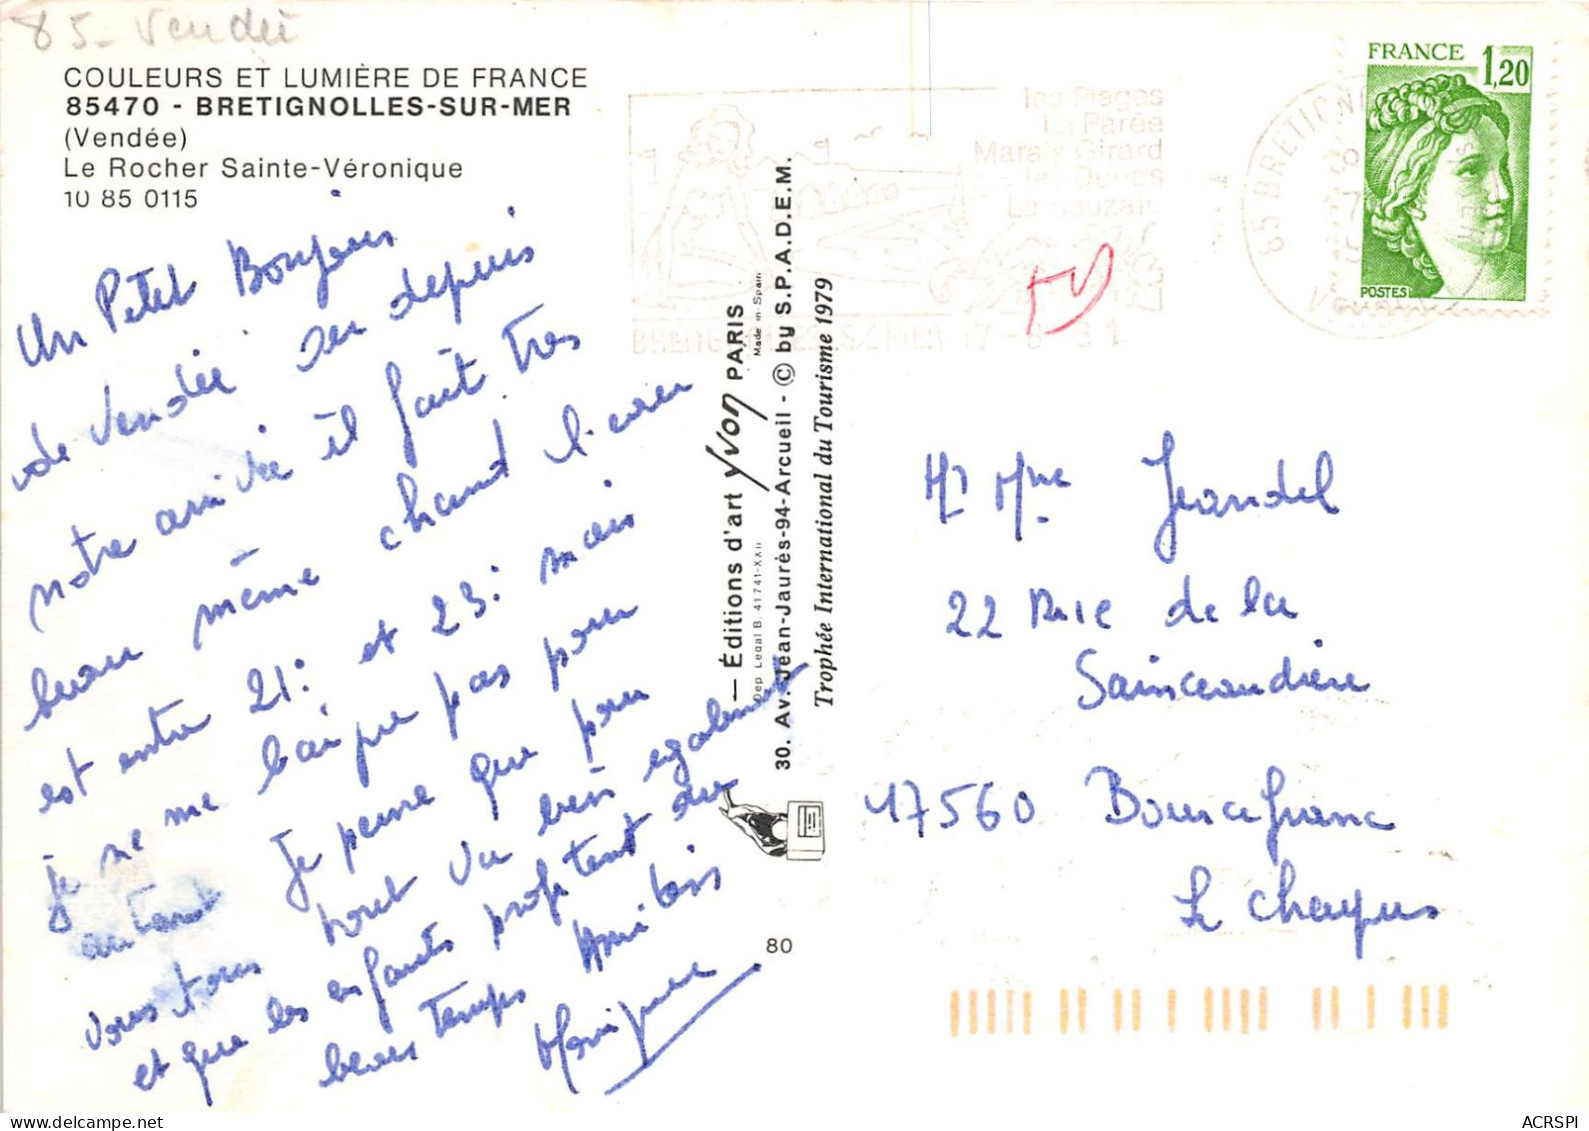 85 - Vendée
COULEURS ET LUMIÈRE DE FRANCE
85470 - BRETIGNOLLES-SUR-MER
(Vendée)
Le Rocher Sainte-Véronique
10 85 0115
Un Petit Bonjour
de Vendée ou depuis
notre arrivée il fait très
beau même chaud l'eau
est entre 21° et 23° mais
je ne me baigne pas pour
autant Je pense que pour
vous tous tout va bien également
et que les enfants profitent du
beau temps Amitiés
Monique
— Éditions d'art yvon PARIS
Dep. Legal B. 41741-XXII
Made in Spain
30. Av. Jean-Jaurès-94-Arcueil - © by S.P.A.D.E.M.
Trophée International du Tourisme 1979
80
les Plages
La Parée
Marais Girard
les Dunes
FRANCE 1,20
POSTES
Mr Mme Jeandel
22 Rue de la
Sainceaudière
17560 Bourcefranc
Le Chapus
ACRSPI